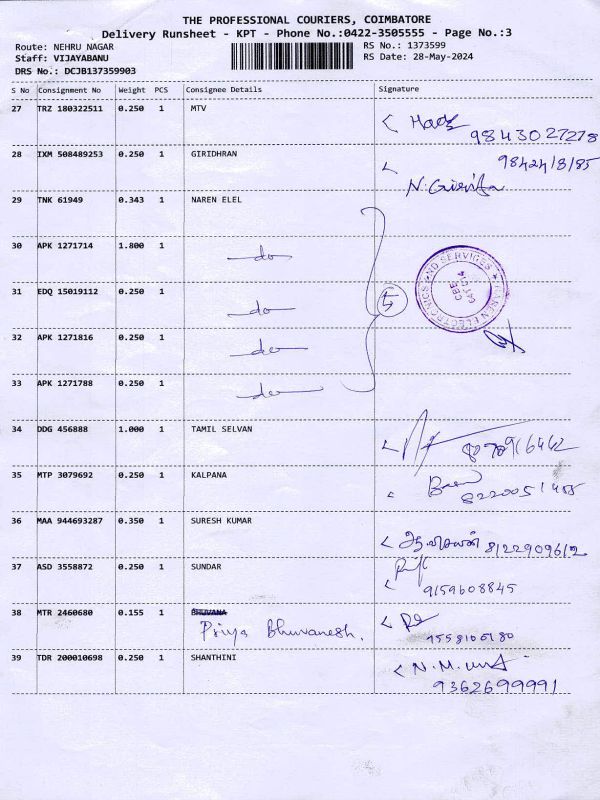 THE PROFESSIONAL COURIERS, COIMBATORE
Delivery Runsheet - KPT - Phone No.:0422-3505555 - Page No.:3
Route: NEHRU NAGAR RS No.: 1373599
Staff: VIJAYABANU RS Date: 28-May-2024
DRS No.: DCJB137359903
S No Consignment No Weight PCS Consignee Details Signature
27 TRZ 180322511 0.250 1 MTV
9843027278
28 IXM 508489253 0.250 1 GIRIDHRAN
N.
29 TNK 61949 0.343 1 NAREN ELEL
30 APK 1271714 1.800 1 do
31 EDQ 15019112 0.250 1 do 5
32 APK 1271816 0.250 1 do
33 APK 1271788 0.250 1 do
34 DDG 456888 1.000 1 TAMIL SELVAN
8870916442
35 MTP 3079692 0.250 1 KALPANA
36 MAA 944693287 0.350 1 SURESH KUMAR
8122909612
37 ASD 3558872 0.250 1 SUNDAR
9159608845
38 MTR 2460680 0.155 1 BHUVANA
Priya Bhuvanesh.
39 TDR 200010698 0.250 1 SHANTHINI
N.M.
9362699991